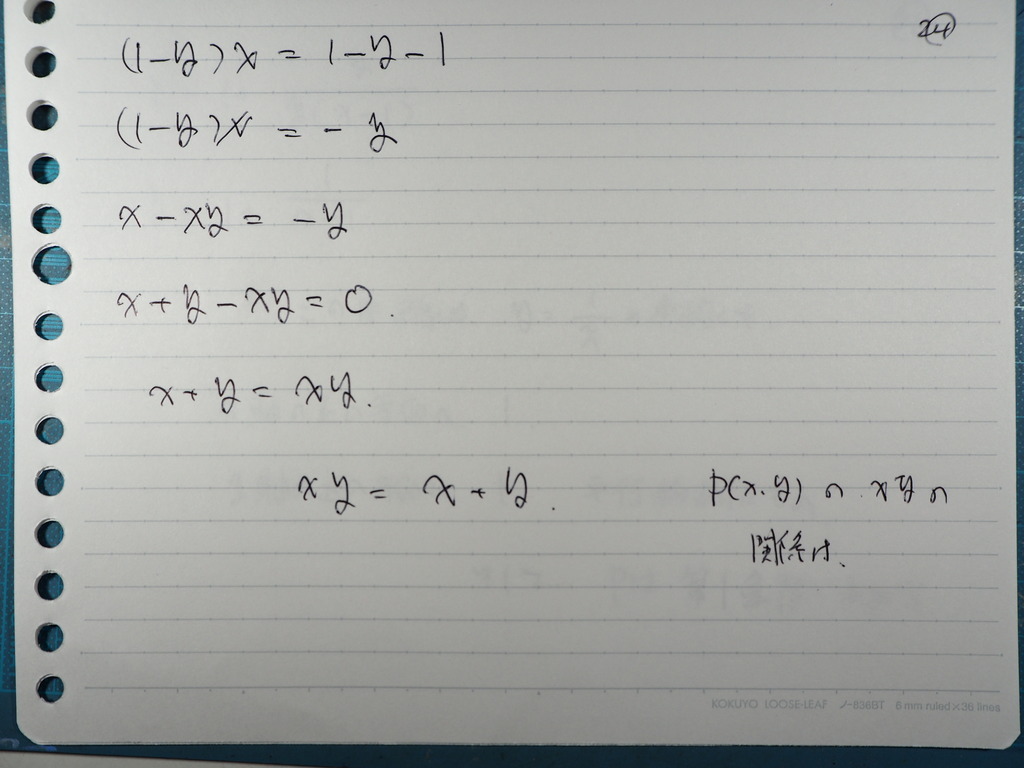 24
(1-y)x = 1-y-1
(1-y)x = -y
x-xy = -y
x+y-xy=0.
x+y = xy.
xy = x+y.
P(x.y) の xyの
関係は、
KOKUYO LOOSE-LEAF ノ-836BT 6 mm ruled×36 lines